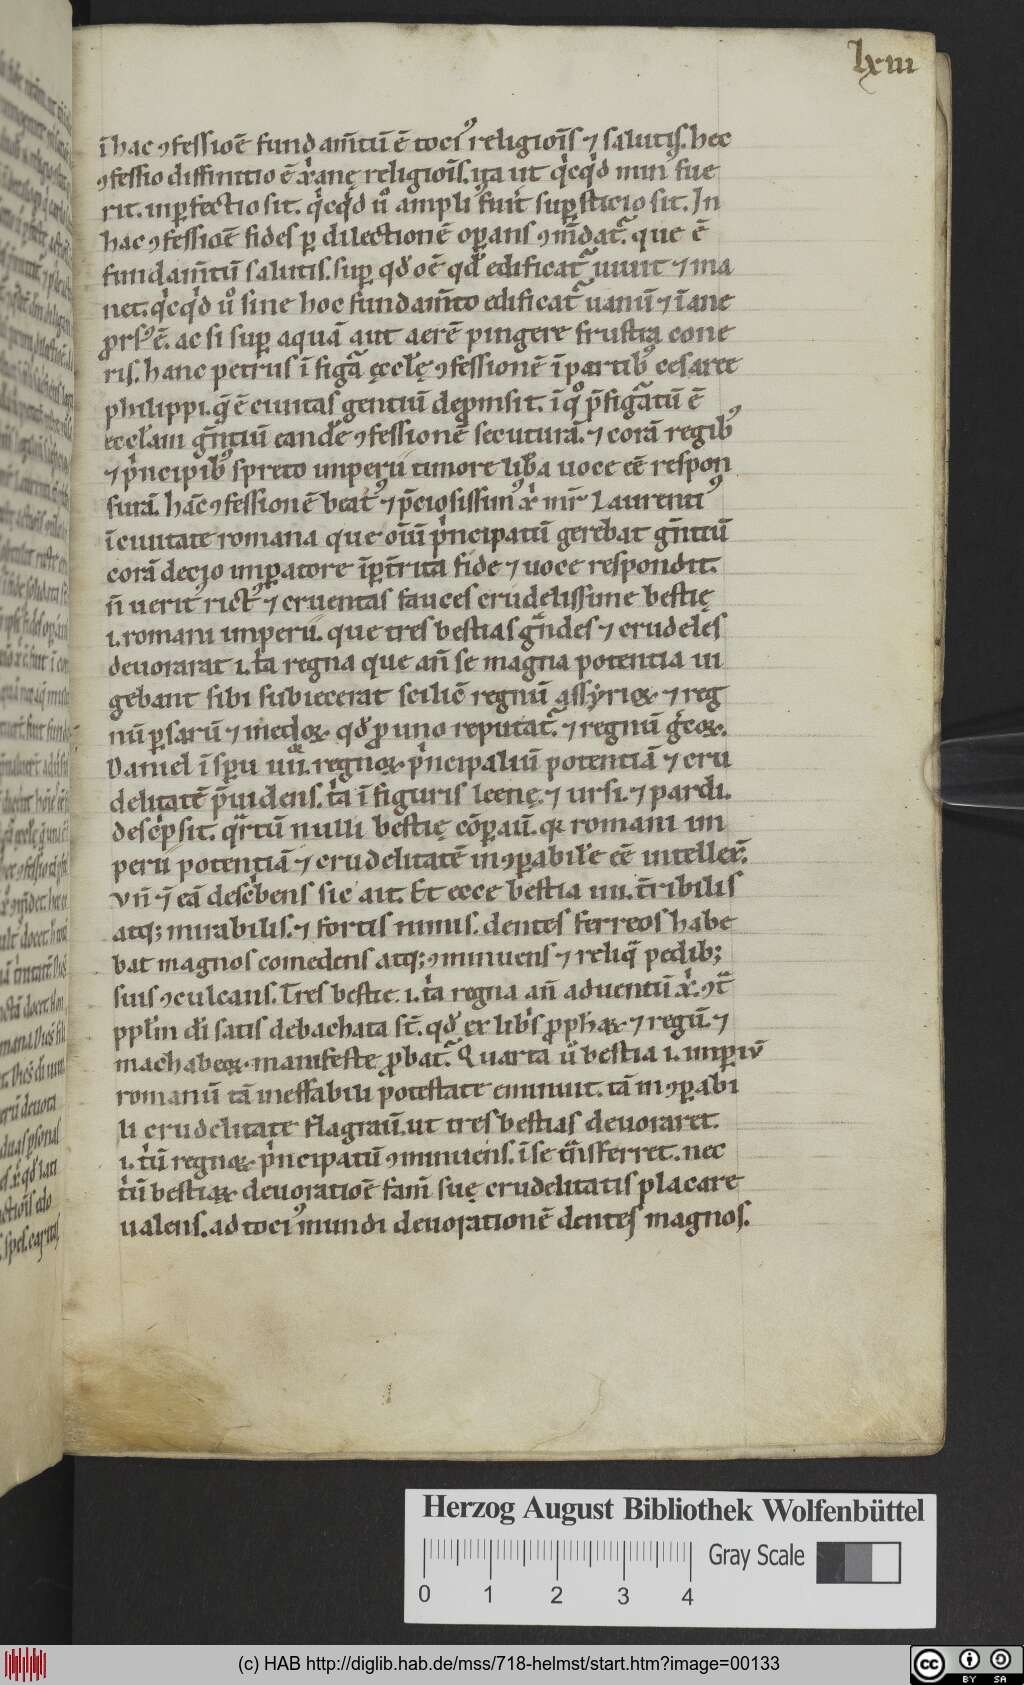 lxiii
ī hac ꝯfessioē fundam̄tū ē toci᷒ religiōis ⁊ salutis. hec
ꝯfessio diffinitio ē xᵢ̄anę religiōis. ita ut qͥcqͥd min᷒ fue
rit. inꝑfectio sit. qͥcqͥd ū ampli᷒ fuit̄ suꝑsticio sit. In
hac ꝯfessioē fides ꝑ dilectionē oꝑans ꝯm̄dat᷑. que ē
fundam̄tū salutis. suꝑ qd̄ oē qd̄ edificat᷑ uiuit ⁊ ma
net. qͥcqͥd ū sine hoc fundam̄to edificat᷑ uanū ⁊ īane
ꝓrs᷒ ē. ac si suꝑ aquā aut aerē pingere frustra cone
ris. hanc petrus ī figᷓa ęccłę ꝯfessionē ī partib᷒ cesaree
philippi. q̄ ē ciuitas gentiū deprinsit. ī qͦ p̄figᷓatū ē
eccłam gn̄tiū eandē ꝯfessionē secuturā. ⁊ corā regib᷒
⁊ pͥncipib᷒ spreto imperii timore lib̄a uoce eē respon
surā. hāc ꝯfessionē beat᷒ ⁊ p̄ciosissim᷒ xͥ mr̄ Laurenti᷒
ī ciuitate romana que oīū pͥncipatū gerebat gn̄tiū
corā decio imꝑatore īꝑt̄rita fide ⁊ uoce respondit.
n̄ uerit᷒ rict᷒ ⁊ cruentas fauces crudelissime bestię
.i. romani imperii. que tres bestias gᷓndes ⁊ crudeles
deuorarat .i. tͥa regna que an̄ se magna potentia ui
gebant sibi subiecerat scilic̄ regnū assyrioꝝ ⁊ reg
nū ꝑsarū ⁊ medoꝝ. qd̄ ꝓ uno reputat᷑. ⁊ regnū gͤcoꝝ.
Daniel ī sp̄u iiii. regnoꝝ pͥncipaliū potentiā ⁊ cru
delitatē p̄uidens. tͥa ī figuris leenę. ⁊ ursi. ⁊ pardi.
descͥpsit. qᷓrtū nulli bestię cōꝑauit. qꝛ romani im
perii potentiā ⁊ crudelitatē inꝯꝑabilē eē intellex̄.
Vn̄ ⁊ eā descͥbens sic ait. Et ecce bestia iiii. t̄ribilis
atq; mirabilis. ⁊ fortis nimis. dentes ferreos habe
bat magnos comedens atq; ꝯminuens ⁊ reliqᷓ pedib;
suis ꝯculcans. Tres bestie .i. tͥa regna an̄ aduentū xͥ. ꝯtᷓ
ppłm di satis debachata st̄. qd̄ ex libͥs ꝓphaꝝ ⁊ regū. ⁊
machabeoꝝ manifeste ꝓbat᷑. Quarta ū bestia .i. imꝑiū
romanū tā ineffabili potestate eminuit. tā inꝯꝑabi
li crudelitate flagrauit. ut tres bestias deuoraret.
.i. tͥū regnoꝝ pͥncipatū ꝯminuens. ī se tᷓnsferret. nec
tͥū bestiaꝝ deuoratioē fam̄ suę crudelitatis placare
ualens. ad toci᷒ mundi deuorationē dentes magnos.
Herzog August Bibliothek Wolfenbüttel
Gray Scale
0 1 2 3 4
(c) HAB http://diglib.hab.de/mss/718-helmst/start.htm?image=00133
cc BY SA